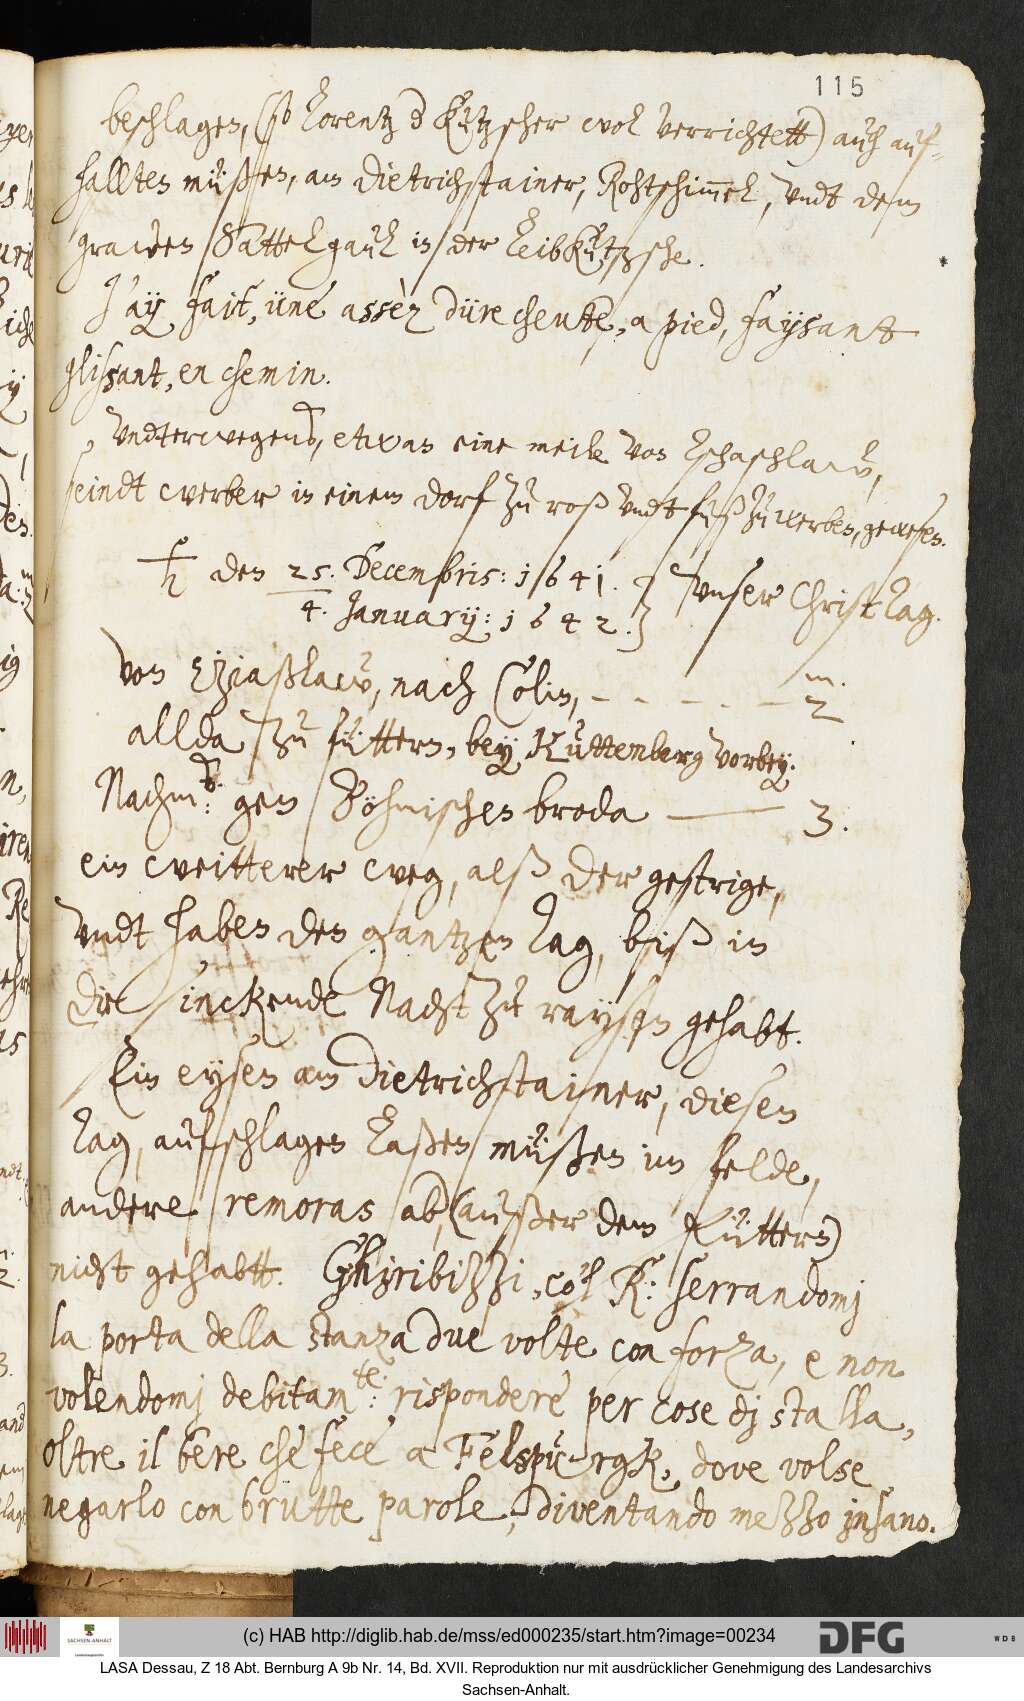 115
beschlagen, (so Lorentz d Kutzscher wol verrichtett) auch auf-
hallten müßen, am Dietrichstainer, Rohtschim̅el, undt dem
grawen Sattelgaul in der LeibKutzsche.
J'aÿ fait, üne assèz düre cheute, a pied, faÿsant
glissant, en chemin.
Undterwegens, etwas eine meile von Tschaschlaw,
seindt werber in einem dorf zu roß undt fuß zu werben, gewesen.
♄ den 25. Decembris: 1641. } Unser Christtag.
4. Januarij: 1642. }
Von Tziaßlaw, nach Colin, - - - - - m. 2
allda zu füttern, bey Kuttemberg vorbey.
Nachm: gen Böhmischen broda —— 3.
ein weitterer weg, alß der gestrige,
undt haben den gantzen tag, biß in
die sinckende Nacht zu raysen gehabt.
Ein eysen am Dietrichstainer, diesen
tag, aufschlagen laßen müßen im felde,
andere remoras ab, (außer dem füttern)
nicht gehabtt. Ghiribizzi, co'l R: serrandomj
la porta della stanza due volte con forza, e non
volendomj debitam:te rispondere per cose dj stalla,
oltre il bere che fece a Felspurgk, dove volse
negarlo con brutte parole, diventando mezzo jnsano.
(c) HAB http://diglib.hab.de/mss/ed000235/start.htm?image=00234
SACHSEN-ANHALT
DFG
WDB
LASA Dessau, Z 18 Abt. Bernburg A 9b Nr. 14, Bd. XVII. Reproduktion nur mit ausdrücklicher Genehmigung des Landesarchivs
Sachsen-Anhalt.